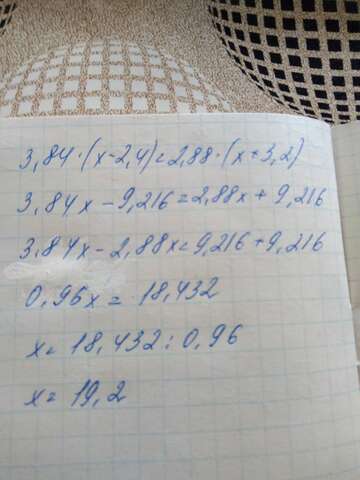 3,84·(x-2,4)=2,88·(x+3,2)
3,84x-9,216=2,88x+9,216
3,84x-2,88x=9,216+9,216
0,96x=18,432
x=18,432:0,96
x=19,2